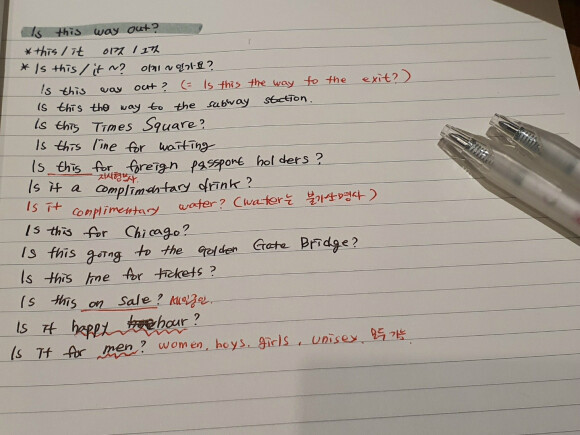 Is this way out?
* this / it 이것 / 그것
* Is this / it ~? 이게 ~인가요?
Is this way out? (= Is this the way to the exit?)
Is this the way to the subway station.
Is this Times Square?
Is this line for waiting
Is this for foreign passport holders?
지시형용사
Is it a complimentary drink?
Is it complimentary water? (water는 불가산명사)
Is this for Chicago?
Is this going to the Golden Gate Bridge?
Is this line for tickets?
Is this on sale? 세일중인.
Is it happy hour?
Is it for men? women, boys, girls, unisex, 모두 가능.